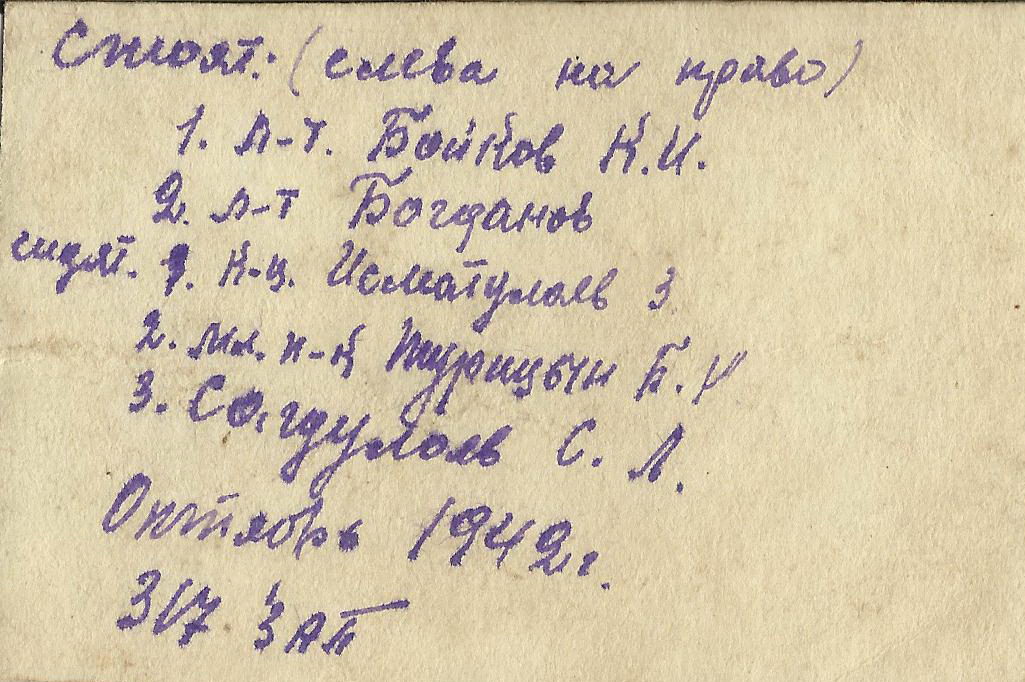 Стоят: (слева на право)
1. л-т. Бойков К.И.
2. л-т Богданов
сидят. 1. к-ц. Исматулаев З
2. мл. л-к Турицын Б. И
3. Сагдулаев С. Л.
Октябрь 1942 г.
317 ЗАП